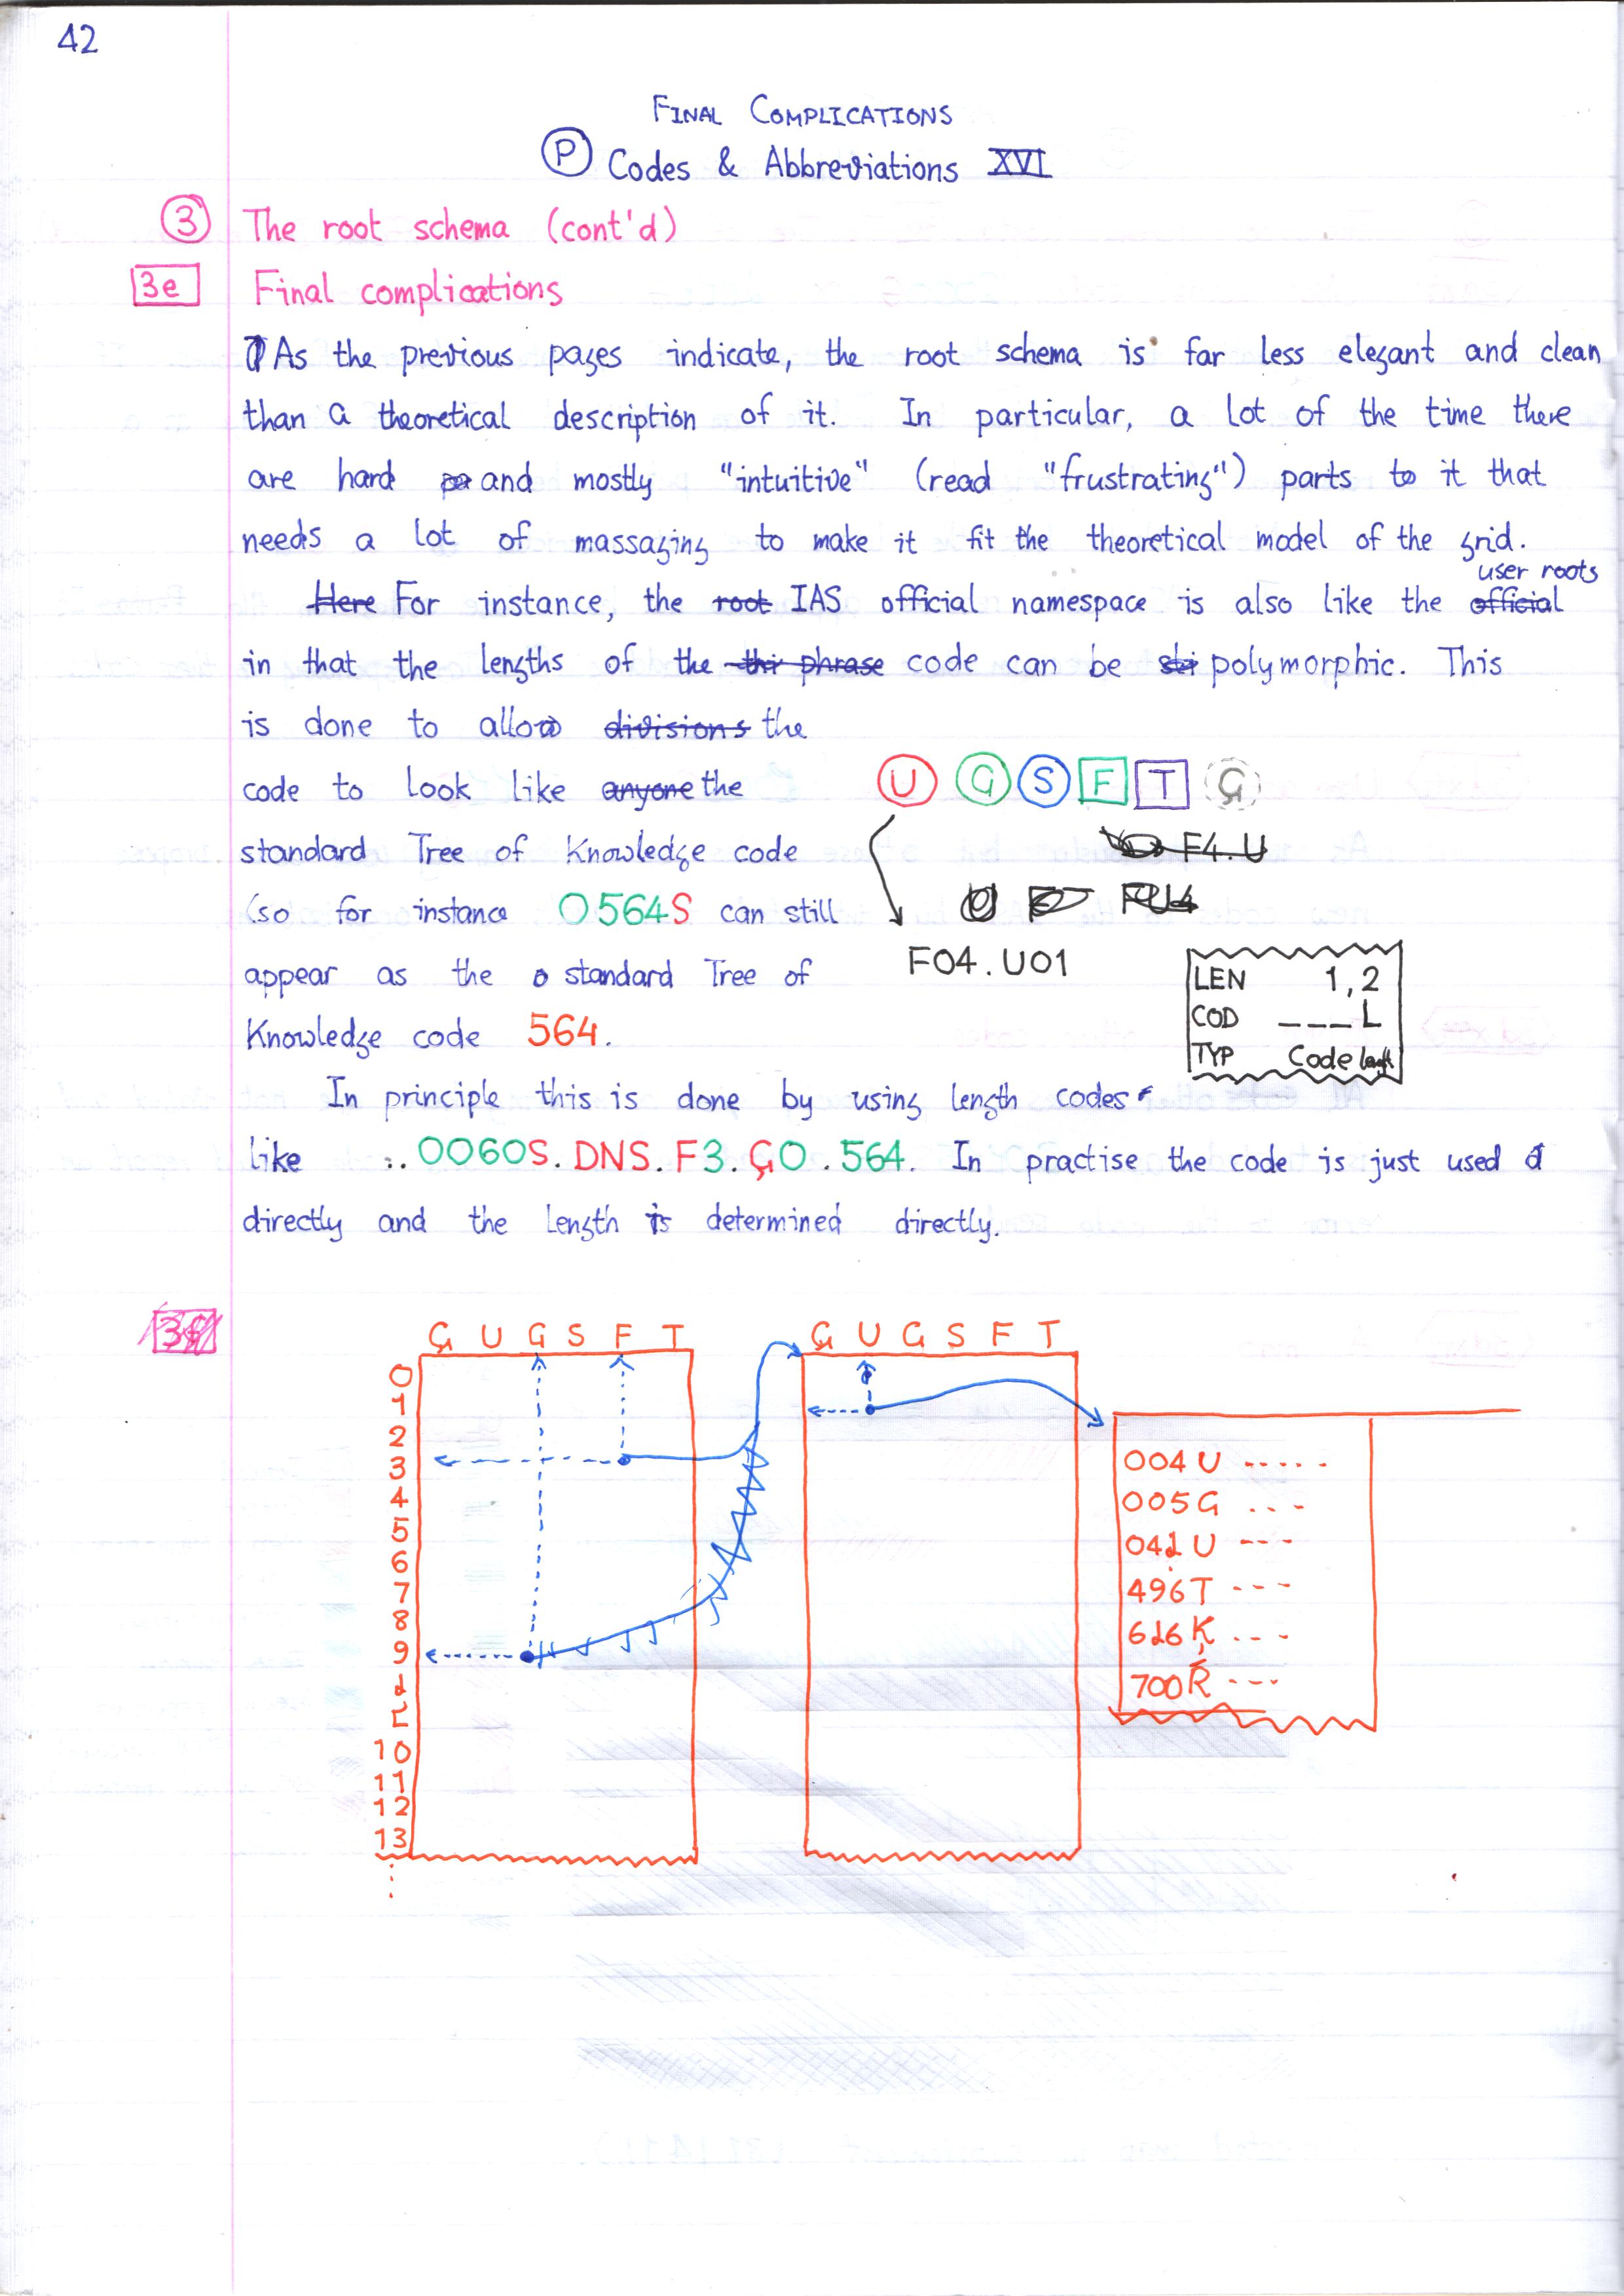 42
FINAL COMPLICATIONS
P Codes & Abbreviations XVI
3 The root schema (cont'd)
3e Final complications
As the previous pages indicate, the root schema is far less elegant and clean
than a theoretical description of it. In particular, a lot of the time there
are hard and mostly "intuitive" (read "frustrating") parts to it that
needs a lot of massaging to make it fit the theoretical model of the grid.
user roots
Here For instance, the root IAS official namespace is also like the official
in that the lengths of the thr phrase code can be polymorphic. This
is done to allow divisions the
code to look like anyone the
standard Tree of Knowledge code
(so for instance 0564S can still
appear as the standard Tree of
Knowledge code 564.
U G S F T Ģ
F4.U
F04.U01
LEN 1,2
COD ___L
TYP Code length
In principle this is done by using length codes
like :. 0060S.DNS.F3.ĢO.564. In practise the code is just used
directly and the length is determined directly.
Ģ U G S F T
0
1
2
3
4
5
6
7
8
9
10
11
12
13
Ģ U G S F T
004U -----
005G ...
496T ---
700Ŗ ---